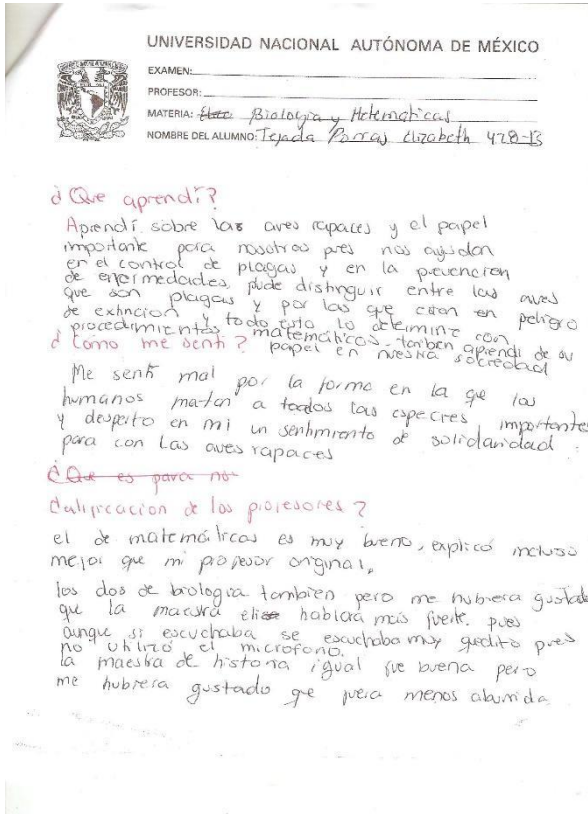 UNIVERSIDAD NACIONAL AUTÓNOMA DE MÉXICO
EXAMEN:
PROFESOR:
MATERIA: Biología y Matemáticas
NOMBRE DEL ALUMNO: Tejada Porras Elizabeth 428-B
¿Que aprendí?
Aprendí sobre las aves rapaces y el papel
importante para nosotros pues nos ayudan
en el control de plagas y en la prevencion
de enfermedades, pude distinguir entre las aves
que son plagas y por las que están en peligro
de extincion y todo esto lo determine con
procedimientos matemáticos. tambien aprendi de su
papel en nuestra sociedad
¿Como me senti?
Me sentí mal por la forma en la que los
humanos matan a todas las especies importantes
y desperto en mi un sentimiento de solidaridad
para con las aves rapaces
¿Que es para no
Calificacion de los profesores?
el de matemáticas es muy bueno, explicó incluso
mejor que mi profesor original,
los dos de biologia tambien pero me hubiera gustado
que la maestra hablara más fuerte. pues
aunque si escuchaba se escuchaba muy quedito pues
no utilizó el microfono.
la maestra de historia igual fue buena pero
me hubiera gustado que fuera menos aburrida